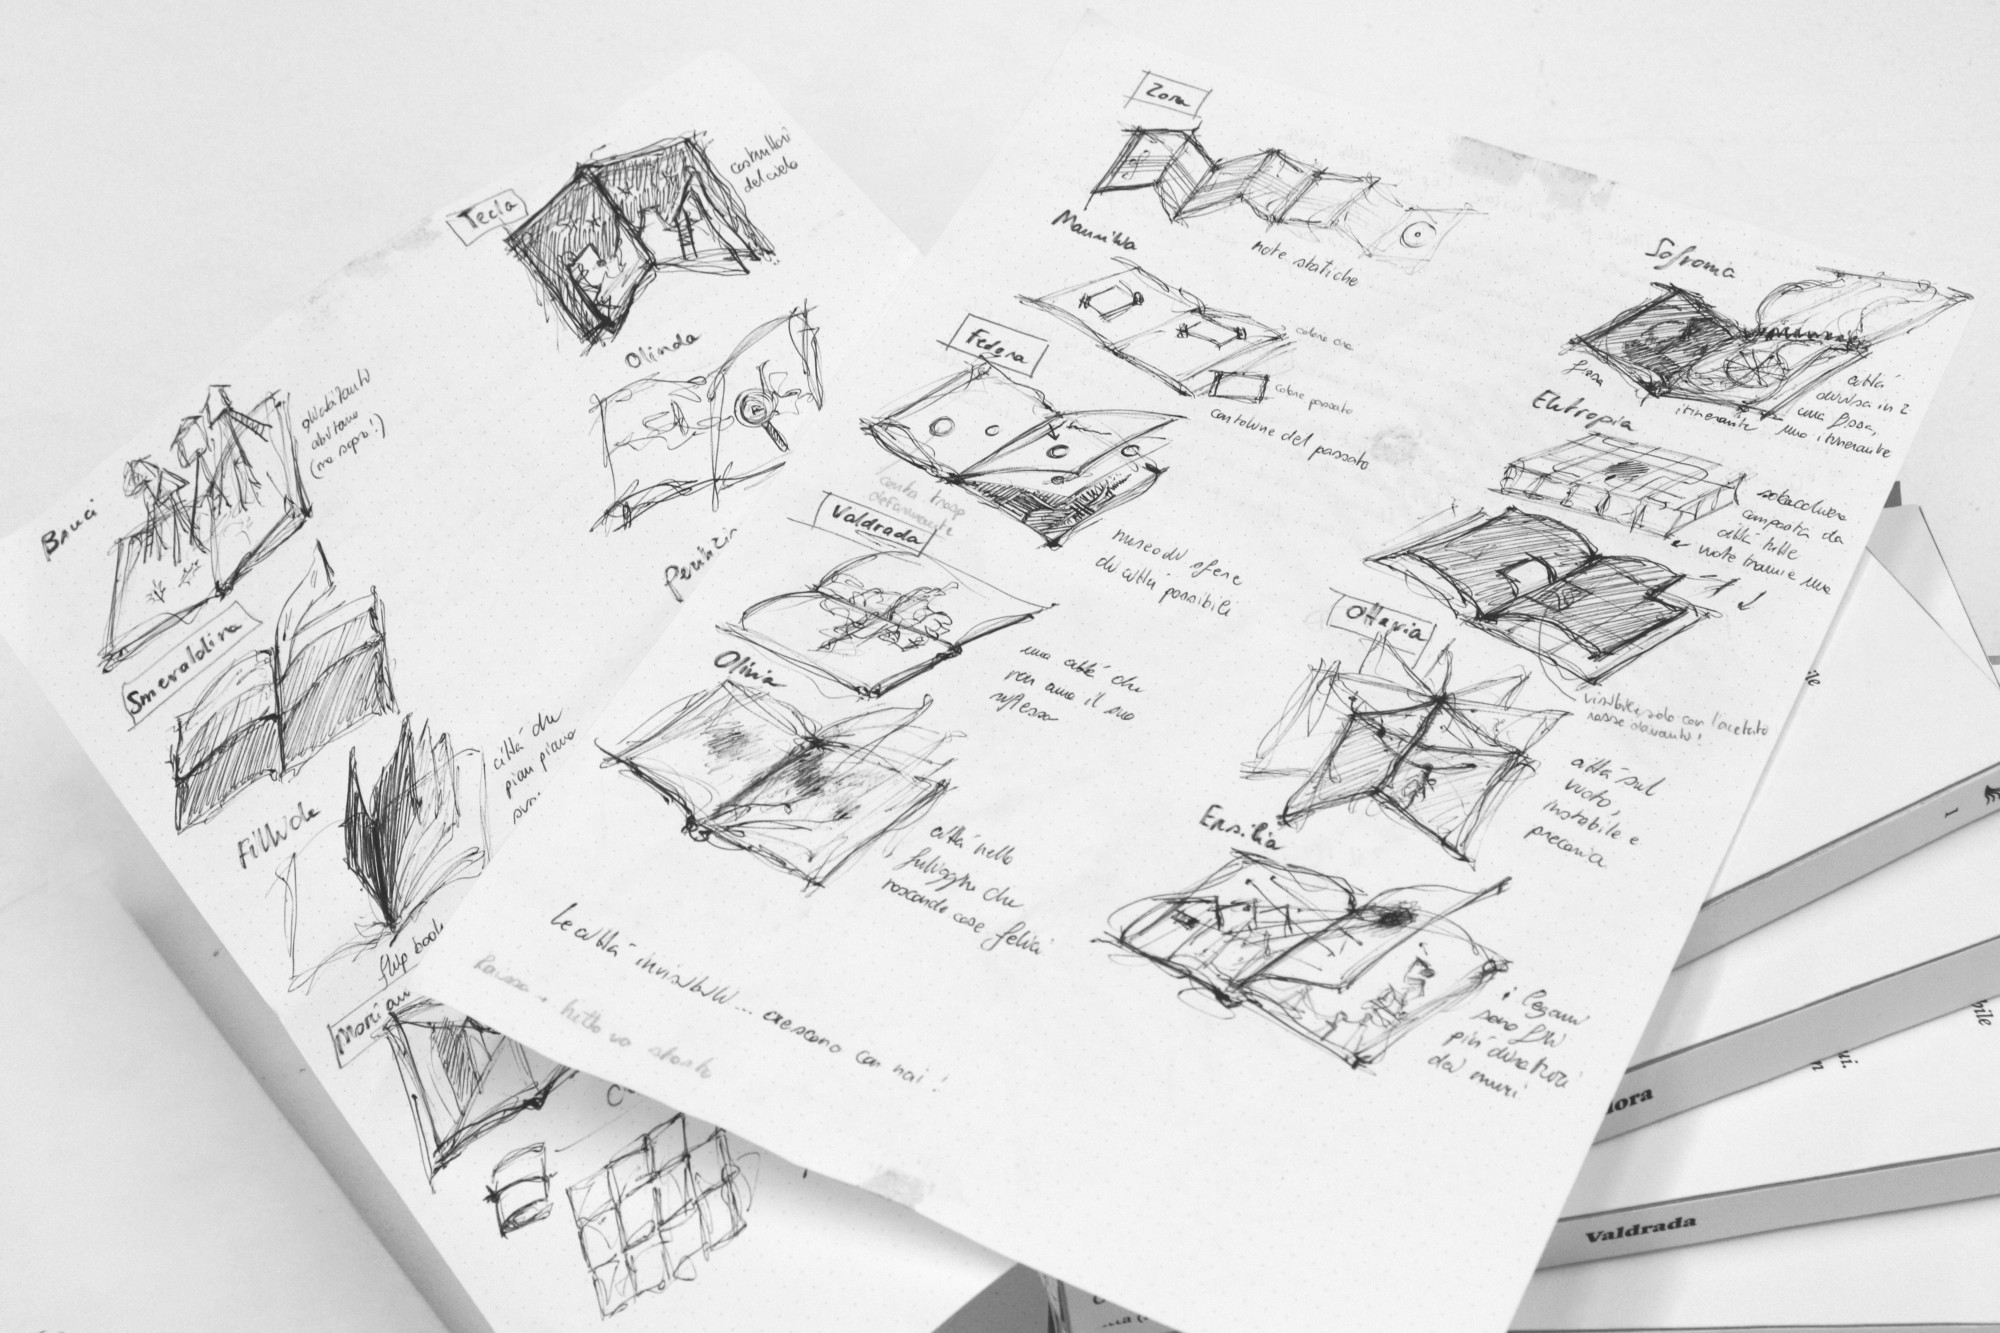 Tecla
costruttori
del cielo
Olinda
Bauci
gli abitanti
abitano
(ma sopra!)
Smeraldina
Perinzia
Fillide
città che
pian piano
flip book
Zora
note statiche
Maurilia
colore ora
colore passato
cartoline del passato
Fedora
carta trasp
deformante
museo di sfere
di città possibili
Valdrada
una città che
non ama il suo
riflesso
Olivia
città nella
fuliggine che
nasconde case felici
Le città invisibili... crescono con noi!
Raissa → tutto va storto
Sofronia
fissa
itinerante
città
divisa in 2
una fissa,
una itinerante
Eutropia
scacchiera
composta da
città tutte
vuote tranne una
visibile solo con l'acetato
rosso davanti!
Ottavia
città sul
vuoto,
instabile e
precaria
Ersilia
i legami
sono fili
più duraturi
dei muri
1
bile
ui.
n
Valdrada